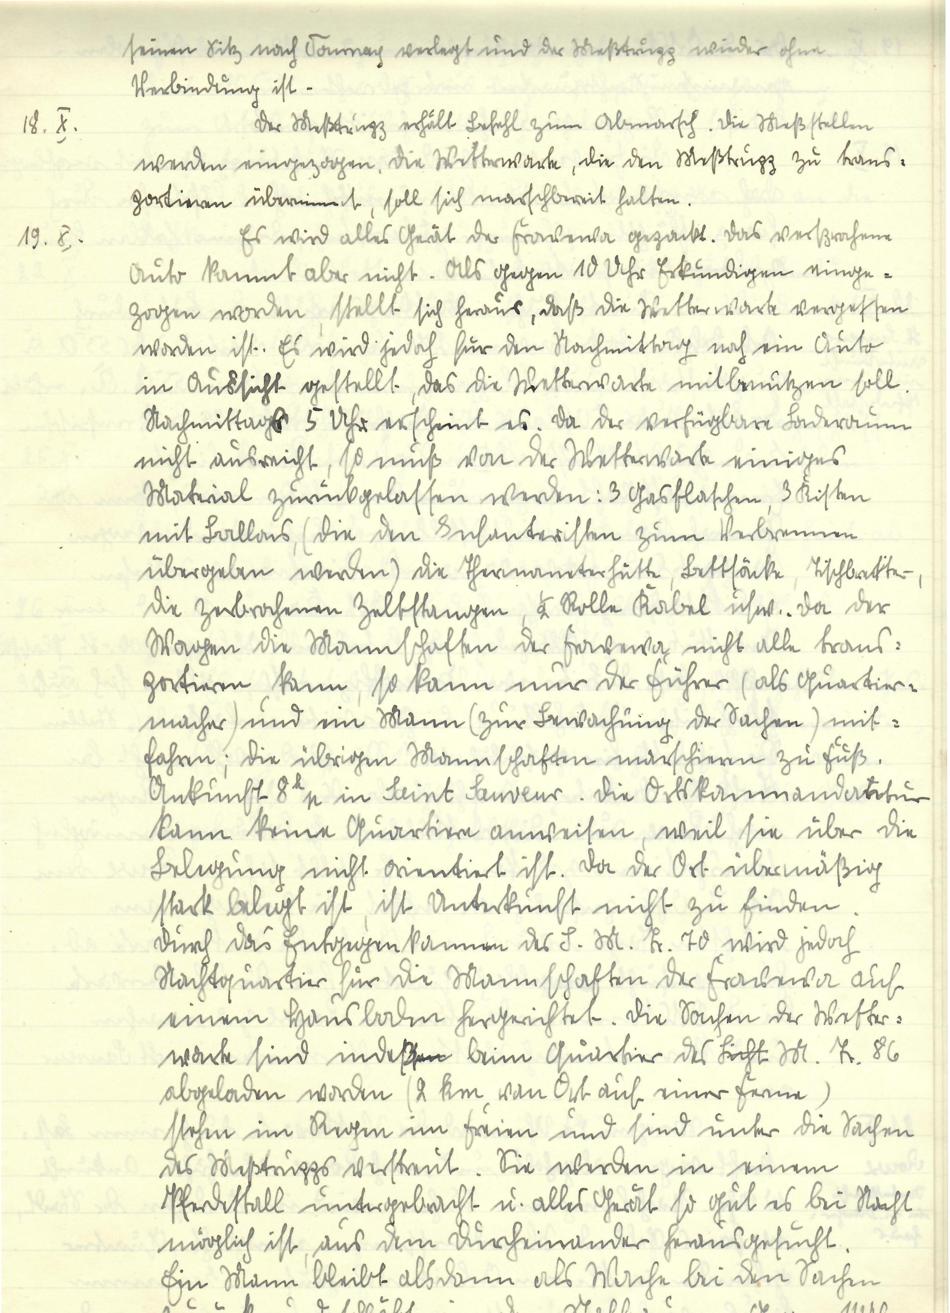 seinen Sitz nach Tournay verlegt und der Meßtrupp wieder ohne
Verbindung ist.
18. X. Der Meßtrupp erhält Befehl zum Abmarsch. Die Meßstellen
werden eingezogen. Die Wetterwarte, die den Meßtrupp zu trans-
portieren übernimmt, soll sich marschbereit halten.
19. X. Es wird alles Gerät der Frawewa gepackt. Das versprochene
Auto kommt aber nicht. Als gegen 10 Uhr Erkundigen einge-
zogen worden, stellt sich heraus, daß die Wetterwarte vergessen
worden ist. Es wird jedoch für den Nachmittag noch ein Auto
in Aussicht gestellt, das die Wetterwarte mitbenutzen soll.
Nachmittags 5 Uhr erscheint es. Da der verfügbare Laderaum
nicht ausreicht, so muß von der Wetterwarte einiges
Material zurückgelassen werden: 3 Gasflaschen, 3 Kisten
mit Ballons, (die den Infanteristen zum Verbrennen
übergeben werden) die Thermometerhütte, Bettsäcke, Tischbretter,
die zerbrochenen Zeltstangen, ½ Rolle Kabel usw.. Da der
Wagen die Mannschaften der Frawewa nicht alle trans-
portieren kann, so kann nur der Führer (als Quartier-
macher) und ein Mann (zur Bewachung der Sachen) mit-
fahren; die übrigen Mannschaften marschieren zu Fuß.
Ankunft 8 h n in Saint Sauveur. Die Ortskommandantur
kann keine Quartiere anweisen, weil sie über die
Belegung nicht orientiert ist. Da der Ort übermäßig
stark belegt ist, ist Unterkunft nicht zu finden.
Durch das Entgegenkommen des S. M. Tr. 70 wird jedoch
Nachtquartier für die Mannschaften der Frawewa auf
einem Hausboden hergerichtet. Die Sachen der Wetter-
warte sind indessen beim Quartier des Licht M. Tr. 86
abgeladen worden (2 km von Ort auf einer Ferme)
stehen im Regen im Freien und sind unter die Sachen
des Meßtrupps verstreut. Sie werden in einem
Pferdestall untergebracht u. alles Gerät so gut es bei Nacht
möglich ist, aus dem Durcheinander herausgesucht.
Ein Mann bleibt alsdann als Wache bei den Sachen